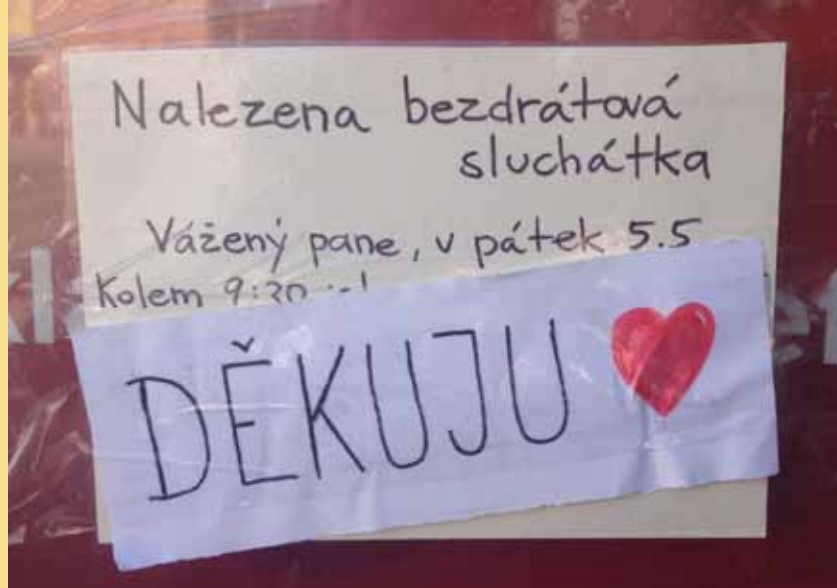 Nalezena bezdrátová
sluchátka
Vážený pane, v pátek 5.5
Kolem 9:30
DĚKUJU